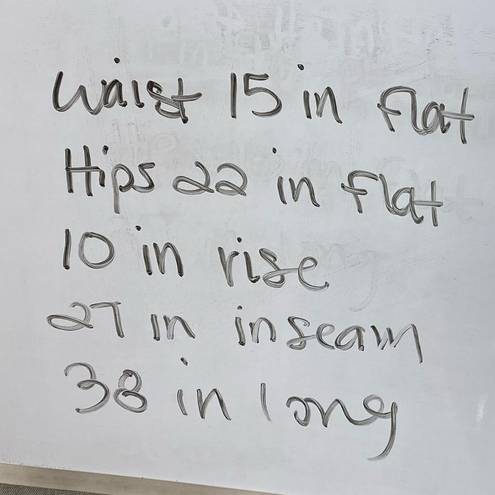 Waist 15 in flat
Hips 22 in flat
10 in rise
27 in inseam
38 in long